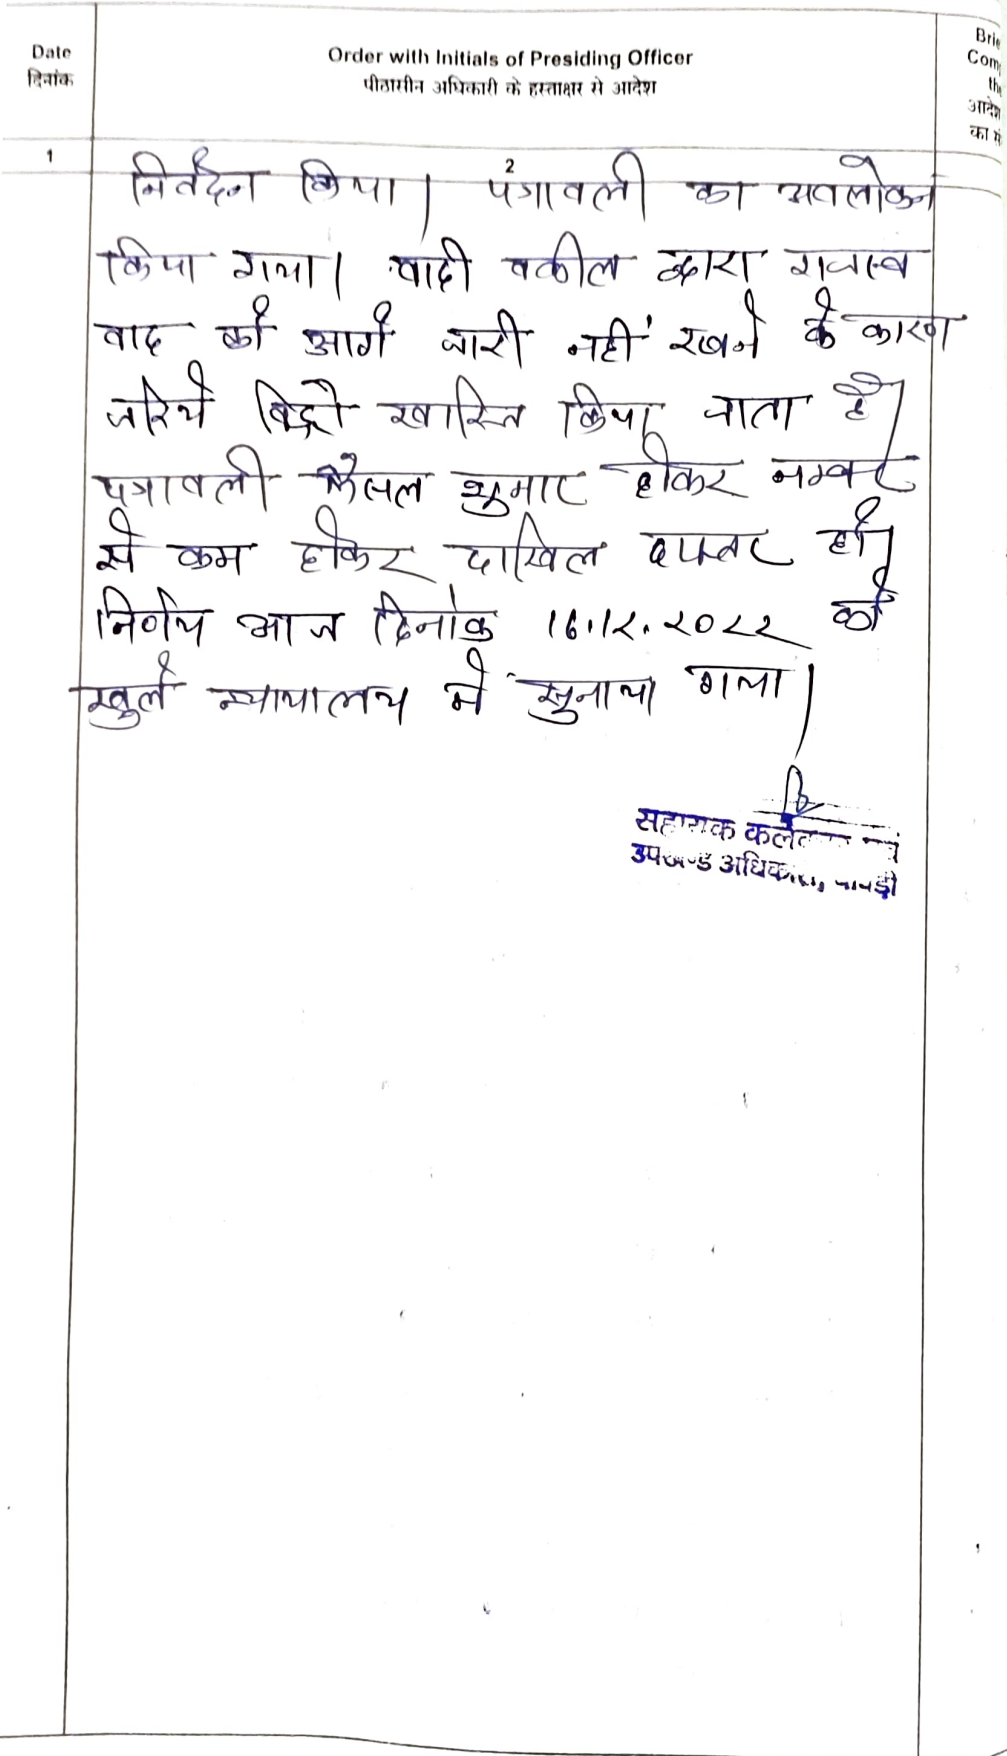 Date
दिनांक
Order with Initials of Presiding Officer
पीठासीन अधिकारी के हस्ताक्षर से आदेश
Brie
Com
the
आदेश
का में
1
2
निवेदन किया। पत्रावली का अवलोकन
किया गया। वादी वकील द्वारा राजस्व
वाद को आगे जारी नहीं रखने के कारण
जरिये विड्रो खारिज किया जाता है।
पत्रावली फैसल शुमार होकर नम्बर
से कम होकर दाखिल दफ्तर हो।
निर्णय आज दिनांक 16.12.2022 को
खुले न्यायालय में सुनाया गया।
सहायक कलेक्टर एवं
उपखण्ड अधिकारी,